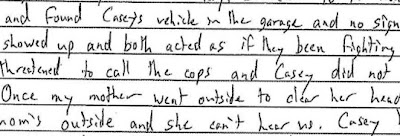 and found Casey's vehicle in the garage and no sign
showed up and both acted as if they been fighting
threatened to call the cops and Casey did not
Once my mother went outside to clear her head
mom's outside and she can't hear us. Casey